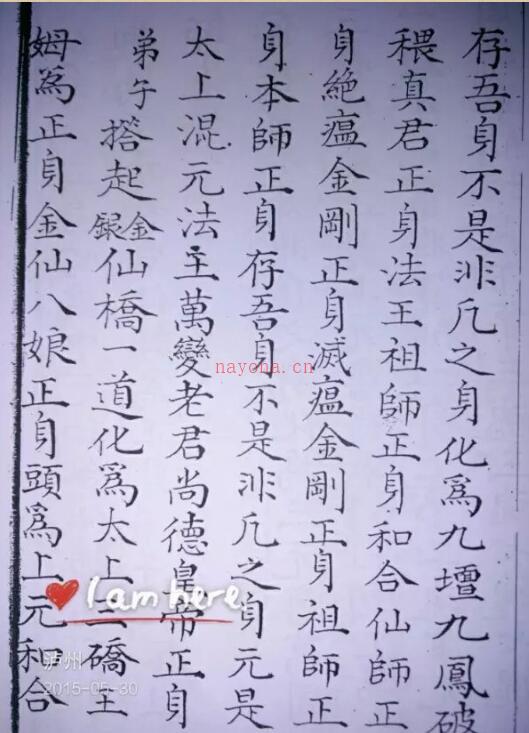 存吾身不是非凡之身化爲九壇九鳳破
穢真君正身法王祖師正身和合仙師正
身絶瘟金剛正身滅瘟金剛正身祖師正
身本師正身存吾身不是非凡之身元是
太上混元法主萬變老君尚德皇帝正身
弟子搭起金銀仙橋一道化爲太上三磽主
姆爲正身金仙八娘正身頭爲上元和合
nayona.cn
I am here
泸州
2015-05-30